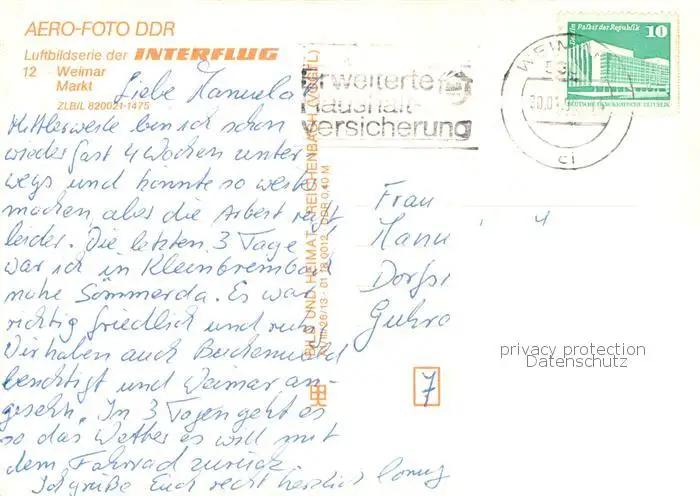 AERO-FOTO DDR
Luftbildserie der INTERFLUG
12 Weimar
Markt
ZLB/L 820021-1475
Palast der Republik 10
DEUTSCHE DEMOKRATISCHE REPUBLIK
WEIM
30.01
ci
Erweiterte
Haushalt-
versicherung
Liebe Manuela
Mittlerweile bin ich schon
wieder fast 4 Wochen unter-
wegs und könnte so weiter
machen aber die Arbeit
leider. Die letzten 3 Tage
war ich in Kleinbrembach
nähe Sömmerda. Es war
richtig friedlich und
Wir haben auch Buchenwald
besichtigt und Weimar an-
gesehn. In 3 Tagen geht es
so das Wetter es will mit
dem Fahrrad zurück.
Ich grüße Euch recht herzlich
BILD UND HEIMAT REICHENBACH (VOGTL)
DDR 0,40 M
Frau
Manu
Dorfs
Guhro
7
privacy protection
Datenschutz